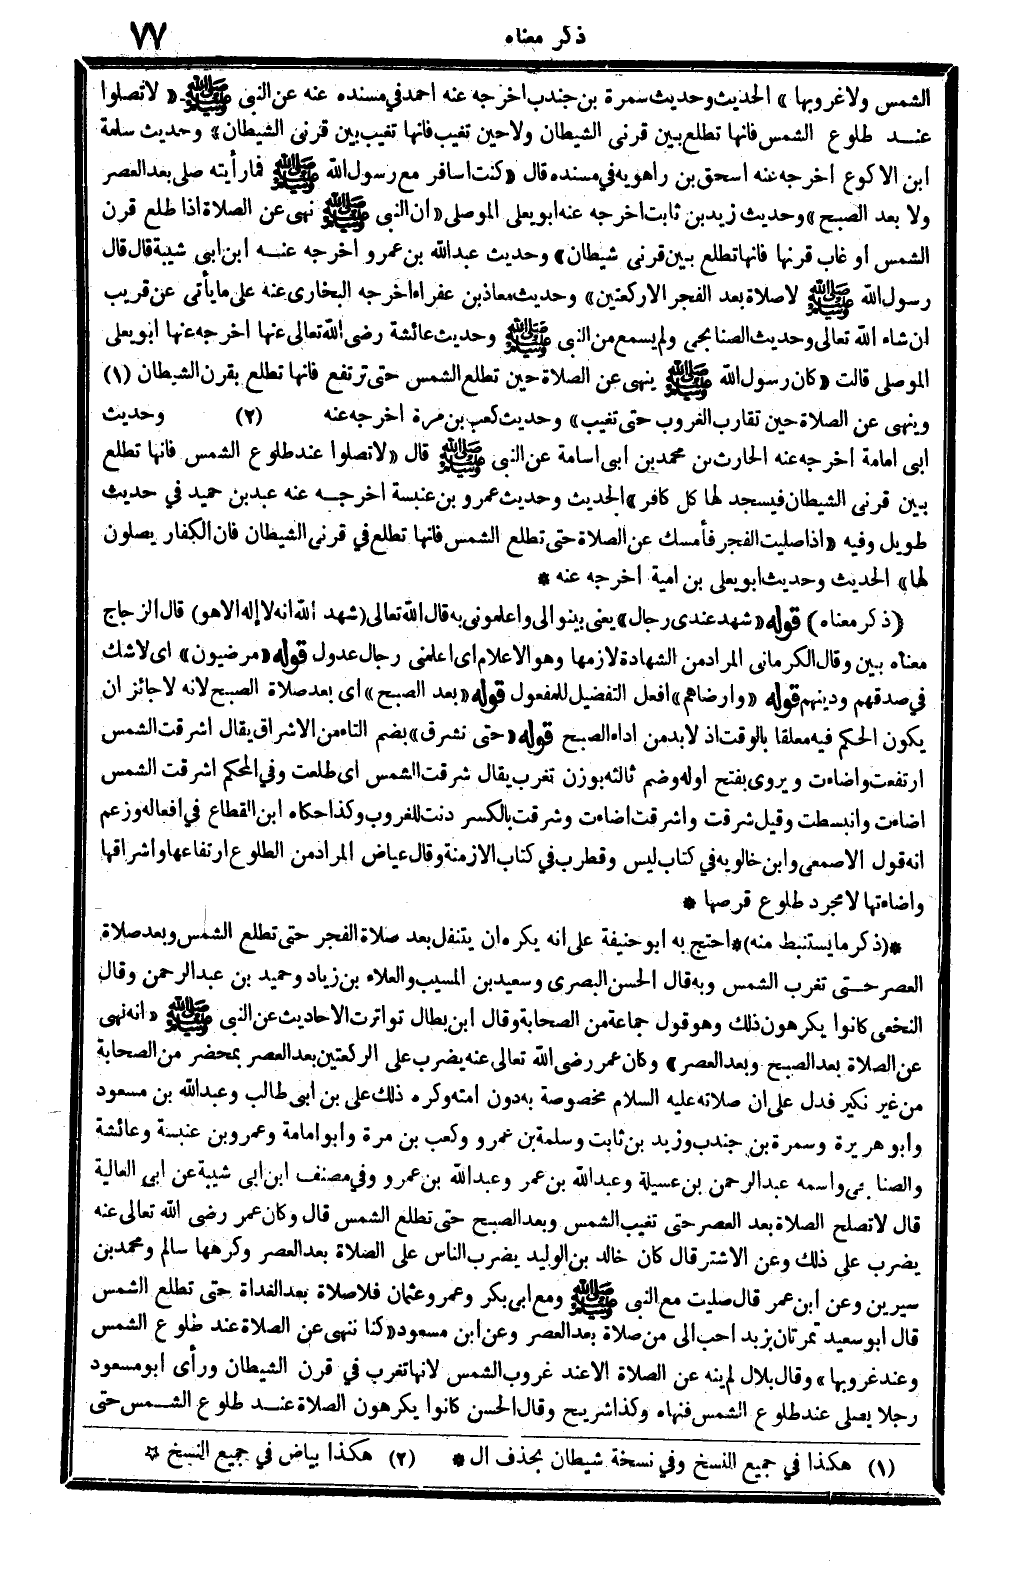 ذكر معناه
٧٧
الشمس ولا غروبها» الحديث وحديث سمرة بن جندب اخرجه عنه احمد في مسنده عنه عن النبي ﷺ «لا تصلوا
عند طلوع الشمس فانها تطلع بين قرني الشيطان ولا حين تغيب فانها تغيب بين قرني الشيطان» وحديث سلمة
ابن الاكوع اخرجه عنه اسحق بن راهويه في مسنده قال «كنت اسافر مع رسول الله ﷺ فما رأيته صلى بعد العصر
ولا بعد الصبح» وحديث زيد بن ثابت اخرجه عنه ابو يعلى الموصلي «ان النبي ﷺ نهى عن الصلاة اذا طلع قرن
الشمس او غاب قرنها فانها تطلع بين قرني شيطان» وحديث عبد الله بن عمرو اخرجه عنه ابن ابي شيبة قال قال
رسول الله ﷺ لا صلاة بعد الفجر الا ركعتين» وحديث معاذ بن عفراء اخرجه البخاري عنه على ما يأتي عن قريب
ان شاء الله تعالى وحديث الصنابحي ولم يسمع من النبي ﷺ وحديث عائشة رضى الله تعالى عنها اخرجه عنها ابو يعلى
الموصلي قالت «كان رسول الله ﷺ ينهى عن الصلاة حين تطلع الشمس حتى ترتفع فانها تطلع بقرن الشيطان (١)
وينهى عن الصلاة حين تقارب الغروب حتى تغيب» وحديث كعب بن مرة اخرجه عنه (٢) وحديث
ابي امامة اخرجه عنه الحارث بن محمد بن ابي اسامة عن النبي ﷺ قال «لا تصلوا عند طلوع الشمس فانها تطلع
بين قرني الشيطان فيسجد لها كل كافر» الحديث وحديث عمرو بن عنبسة اخرجه عنه عبد بن حميد في حديث
طويل وفيه «اذا صليت الفجر فأمسك عن الصلاة حتى تطلع الشمس فانها تطلع في قرني الشيطان فان الكفار يصلون
لها» الحديث وحديث ابو يعلى بن امية اخرجه عنه *
(ذكر معناه) قوله «شهد عندي رجال» يعني بينوا لي واعلموني به قال الله تعالى (شهد الله انه لا إله الا هو) قال الزجاج
معناه بين وقال الكرماني المراد من الشهادة لازمها وهو الاعلام اي اعلمني رجال عدول قوله «مرضيون» اي لا شك
في صدقهم ودينهم قوله «وارضاهم» افعل التفضيل للمفعول قوله «بعد الصبح» اي بعد صلاة الصبح لانه لا جائز ان
يكون الحكم فيه معلقا بالوقت اذ لا بد من اداء الصبح قوله «حتى تشرق» بضم التاء من الاشراق يقال اشرقت الشمس
ارتفعت واضاءت ويروى بفتح اوله وضم ثالثه بوزن تغرب يقال شرقت الشمس اي طلعت وفي المحكم اشرقت الشمس
اضاءت وانبسطت وقيل شرقت واشرقت اضاءت وشرقت بالكسر دنت للغروب وكذا حكاه ابن القطاع في افعاله وزعم
انه قول الاصمعي وابن خالويه في كتاب ليس وقطرب في كتاب الازمنة وقال عياض المراد من الطلوع ارتفاعها واشراقها
واضاءتها لا مجرد طلوع قرصها *
*(ذكر ما يستنبط منه)* احتج به ابو حنيفة على انه يكره ان يتنفل بعد صلاة الفجر حتى تطلع الشمس وبعد صلاة
العصر حتى تغرب الشمس وبه قال الحسن البصري وسعيد بن المسيب والعلاء بن زياد وحميد بن عبد الرحمن وقال
النخعي كانوا يكرهون ذلك وهو قول جماعة من الصحابة وقال ابن بطال تواترت الاحاديث عن النبي ﷺ «انه نهى
عن الصلاة بعد الصبح وبعد العصر» وكان عمر رضى الله تعالى عنه يضرب على الركعتين بعد العصر بمحضر من الصحابة
من غير نكير فدل على ان صلاته عليه السلام مخصوصة به دون امته وكره ذلك علي بن ابي طالب وعبد الله بن مسعود
وابو هريرة وسمرة بن جندب وزيد بن ثابت وسلمة بن عمرو وكعب بن مرة وابو امامة وعمرو بن عنبسة وعائشة
والصنابحي واسمه عبد الرحمن بن عسيلة وعبد الله بن عمر وعبد الله بن عمرو وفي مصنف ابن ابي شيبة عن ابي العالية
قال لا تصلح الصلاة بعد العصر حتى تغيب الشمس وبعد الصبح حتى تطلع الشمس قال وكان عمر رضى الله تعالى عنه
يضرب على ذلك وعن الاشتر قال كان خالد بن الوليد يضرب الناس على الصلاة بعد العصر وكرهها سالم ومحمد بن
سيرين وعن ابن عمر قال صليت مع النبي ﷺ ومع ابي بكر وعمر وعثمان فلا صلاة بعد الغداة حتى تطلع الشمس
قال ابو سعيد تمرتان بزبد احب الى من صلاة بعد العصر وعن ابن مسعود «كنا ننهى عن الصلاة عند طلوع الشمس
وعند غروبها» وقال بلال لم ينه عن الصلاة الا عند غروب الشمس لانها تغرب في قرن الشيطان ورأى ابو مسعود
رجلا يصلي عند طلوع الشمس فنهاه وكذا شريح وقال الحسن كانوا يكرهون الصلاة عند طلوع الشمس حتى
(١) هكذا في جميع النسخ وفي نسخة شيطان بحذف ال * (٢) هكذا بياض في جميع النسخ ☆